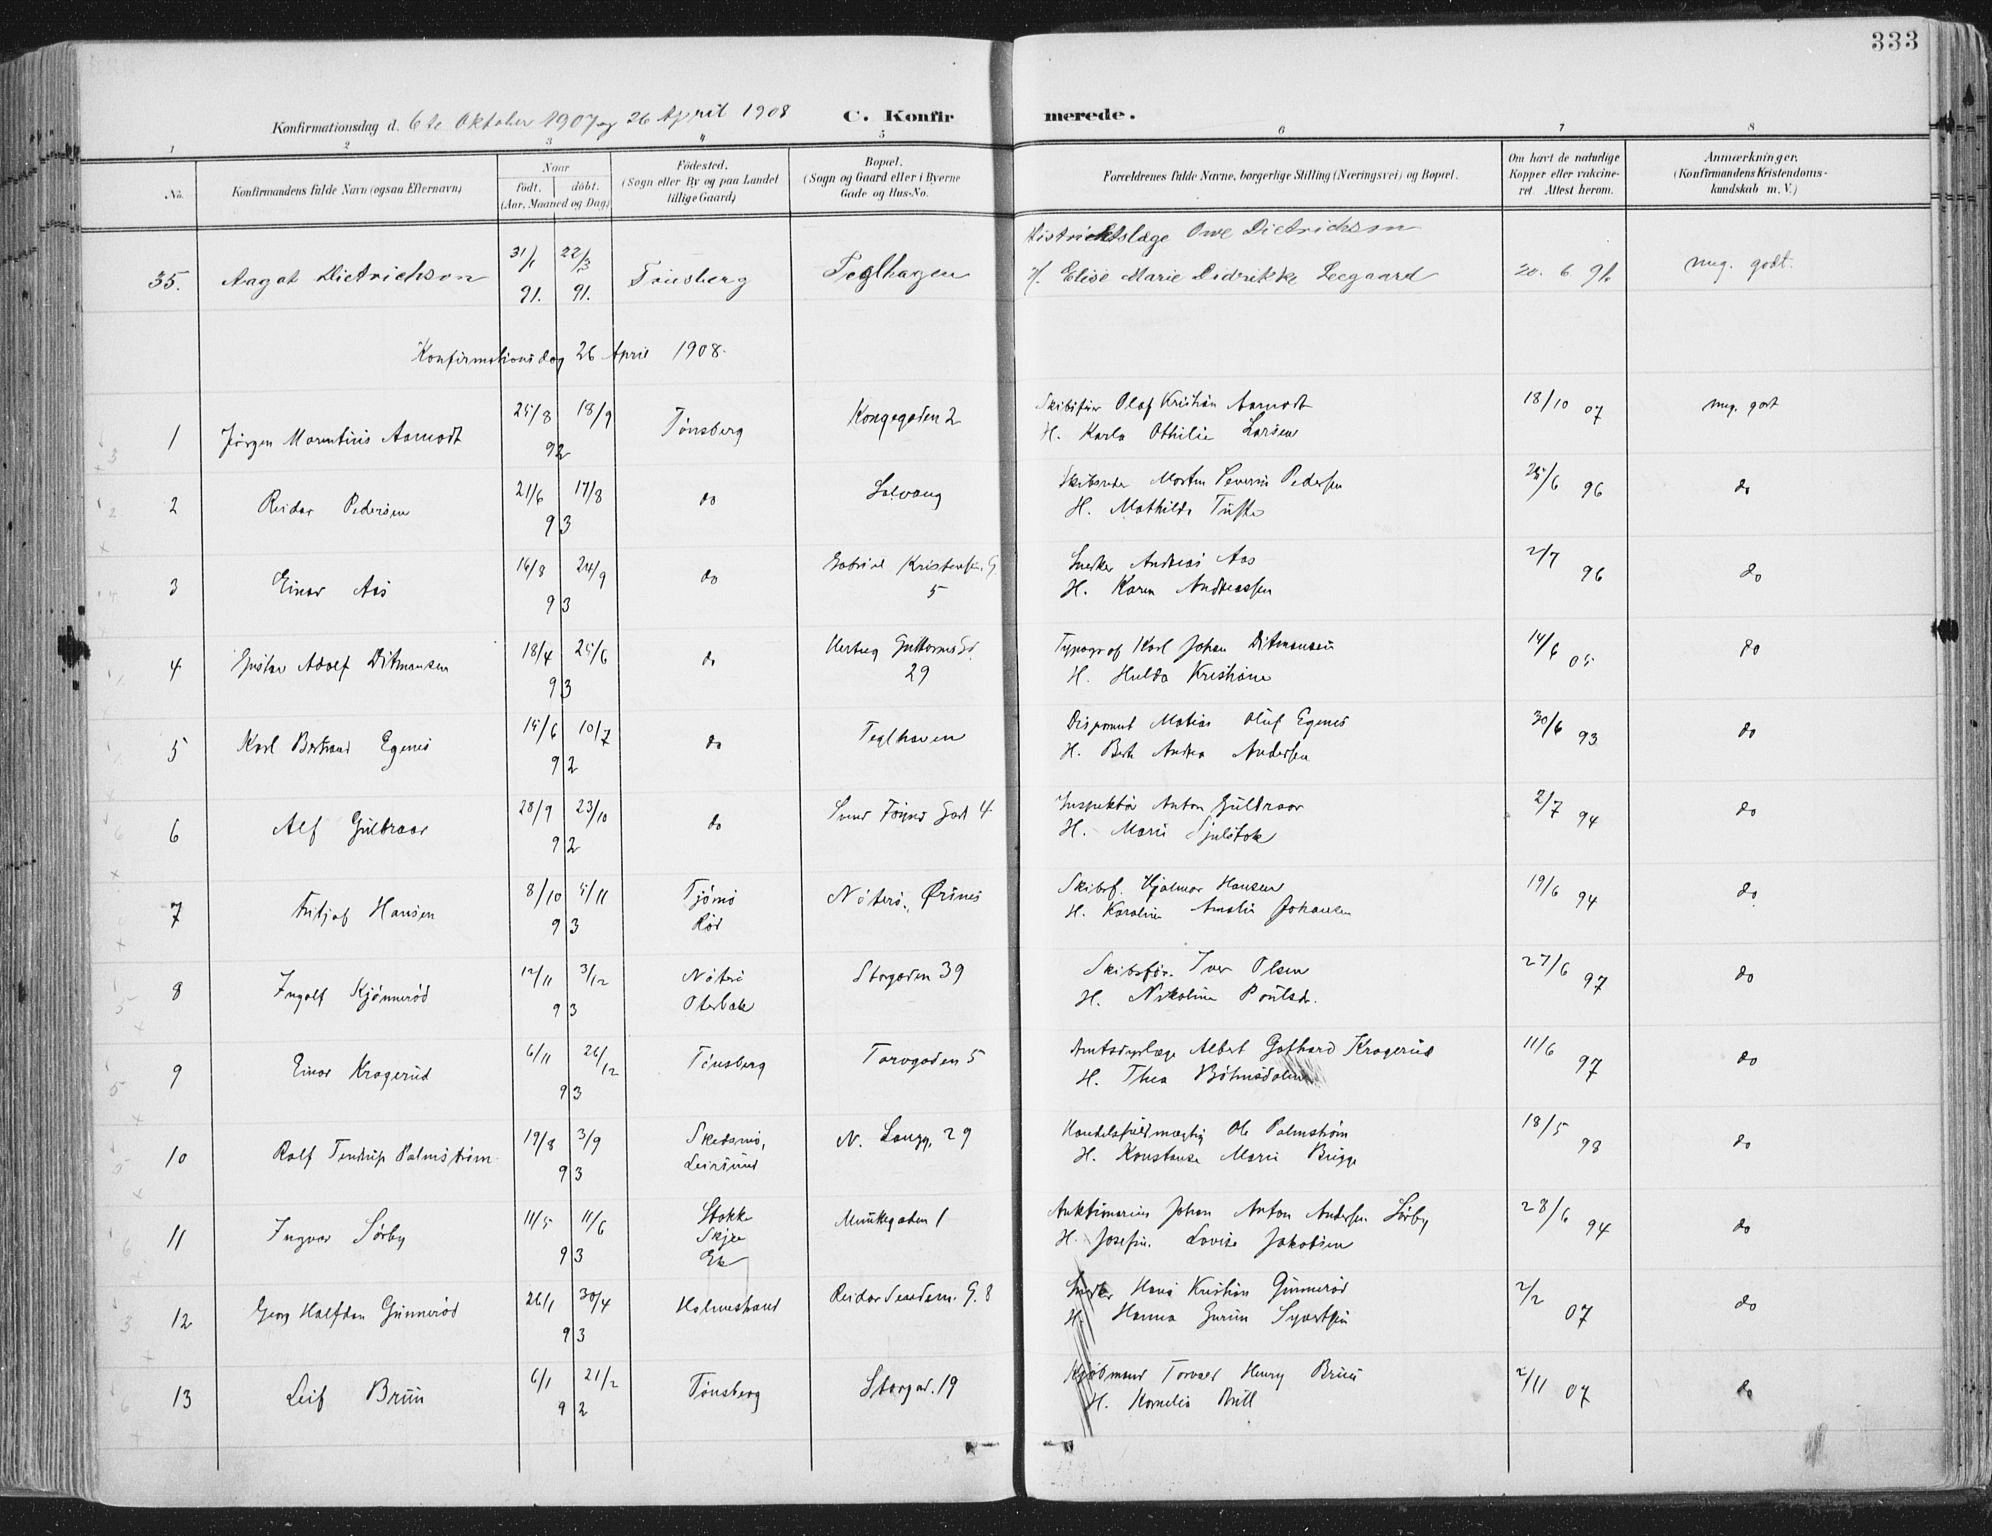 333
Konfirmationsdag d. 6te Oktober 1907 og 26 April 1908 C. Konfirmerede.
1 2 3 4 5 6 7 8
No. Konfirmandens fulde Navn (ogsaa Efternavn) Naar født. døbt. (Aar, Maaned og Dag) Fødested. (Sogn eller By og paa Landet tillige Gaard) Bopæl. (Sogn og Gaard eller i Byerne Gade og Hus-No. Forældrenes fulde Navne, borgerlige Stilling (Næringsvei) og Bopæl. Om havt de naturlige Kopper eller vakcineret. Attest herom. Anmærkninger. (Konfirmandens Kristendomskundskab m. V.)
35. Aagot Dietrichson 31/1 91. 22/3 91. Tönsberg Teglhagen Distriktslæge Owe Dietrichson
H. Elise Marie Didrikke Leegaard 20. 6. 96 meg. godt.
Konfirmationsdag 26 April 1908.
1 Jørgen Marentius Aamodt 25/8 18/9 92 Tønsberg Kongegaden 2 Skibsfører Olaf Kristian Aamodt
H. Karla Othilie Larsen 18/10 07 meg. godt
2 Reidar Pedersen 21/6 17/8 93 do Solvang Skibsreder Morten Severin Pedersen
H. Mathilde Tufte 25/6 96 do
3 Einar Aas 16/8 24/9 93 do Gabriel Kristensens G. 5 Snedker Andreas Aas
H. Karen Andreassen 2/7 96 do
4 Gustav Adolf Ditmansen 18/4 25/6 93 do Hertug Guttormsgd. 29 Typograf Karl Johan Ditmansen
H. Hulda Kristiane 14/6 05 do
5 Karl Bertrand Egenes 15/6 10/7 92 do Teglhaven Disponent Matias Oluf Egenes
H. Berth Andrea Andersen 30/6 93 do
6 Alf Gulbraar 28/9 23/10 92 do Svend Foyns Gad 4 Inspektør Anton Gulbraar
H. Marie 2/7 94 do
7 Fritjof Hansen 8/10 5/11 93 Tjømø
Rød Nøterø, Ørsnes Skibsf. Hjalmar Hansen
H. Karoline Amalie Johansen 19/6 94 do
8 Ingolf Kjønnerød 12/11 3/12 93 Nøterø
Oterbæk Storgaden 39 Skibsfør. Iver Olsen
H. Nikoline Poulsdr. 27/6 97 do
9 Einar Kragerud 6/11 26/12 93 Tønsberg Torvgaden 5 Amtsdyrlæge Albert Gothard Kragerud
H. Thea 11/6 97 do
10 Rolf Tendrup Palmstrøm 19/8 3/9 93 Skedsmo,
Leirsund N. Langg. 29 Handelsfuldmægtig Ole Palmstrøm
H. Konstanse Marie Brigge 18/5 98 do
11 Ingvar Sørby 11/5 11/6 93 Stokke
Skjee
Ek Munkegaden 1 Auktionarius Johan Anton Andersen Sørby
H. Josefin. Lovise Jakobsen 28/6 94 do
12 Georg Halfdan Gunnerød 26/1 30/4 93 Holmestrand Reidar Sendem. G. 8 Hans Kristian Gunnerød
H. Hanna Gurine Syvertsen 2/2 07 do
13 Leif Bruun 6/1 21/2 92 Tønsberg Storgad. 19 Kjøbmand Torvald Henry Bruun
H. Kornelia Bull 2/11 07 do